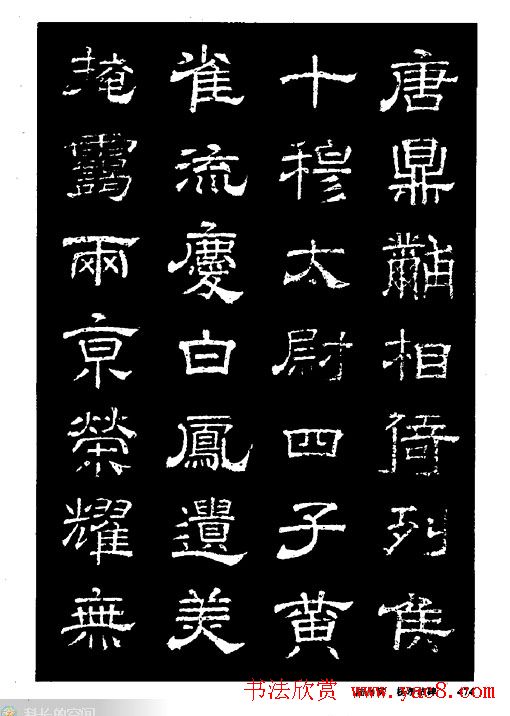 唐鼎相徛列侯
十穆太尉四子黄
雀流慶白鳳遺美
掩靄兩京榮耀無
书法欣赏 www.yac8.com
474
科长的空间